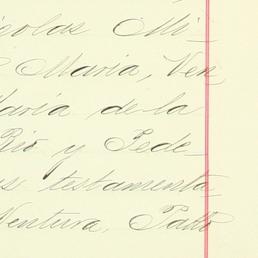 colas Mi-
Maria, Ven
Maria de la
Rio y Fede-
s testamenta
Ventura, Pablo